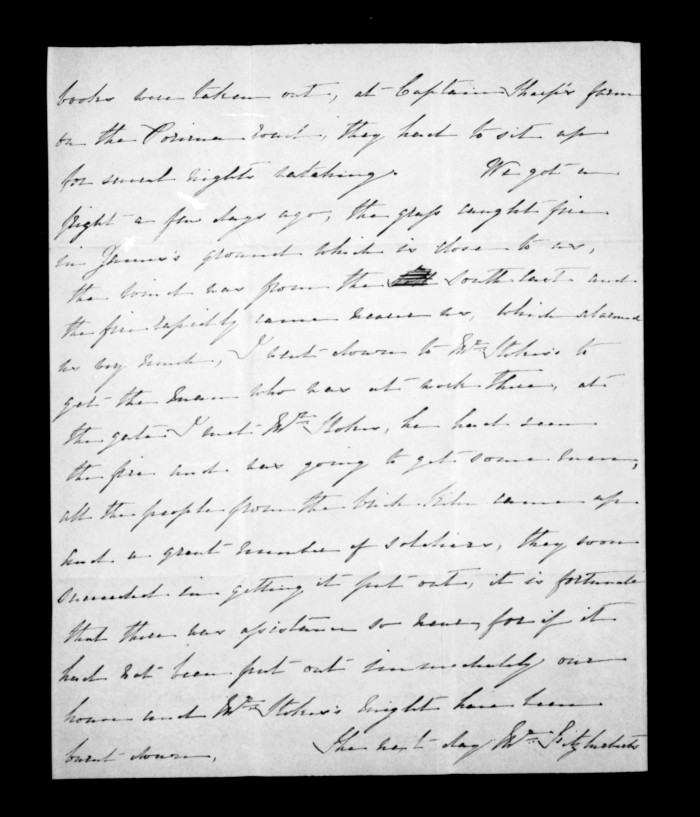 books were taken out, at Captain Sharp's farm
on the Porirua road, they had to sit up
for several nights watching. We got a
fright a few days ago, the grass caught fire
in James's ground which is close to us,
the wind was from the South East and
the fire rapidly came near us, which alarmed
us very much, I went down to Mr Stokes's to
get the man who was at work there, at
the gate I met Mr Stokes, he had seen
the fire and was going to get some men,
all the people from the brick kiln came up
and a great number of soldiers, they soon
succeeded in getting it put out, it is fortunate
that there was assistance so near, for if it
had not been put out immediately our
house and Mr Stokes's might have been
burnt down. The next day Mr Fitzherbert's